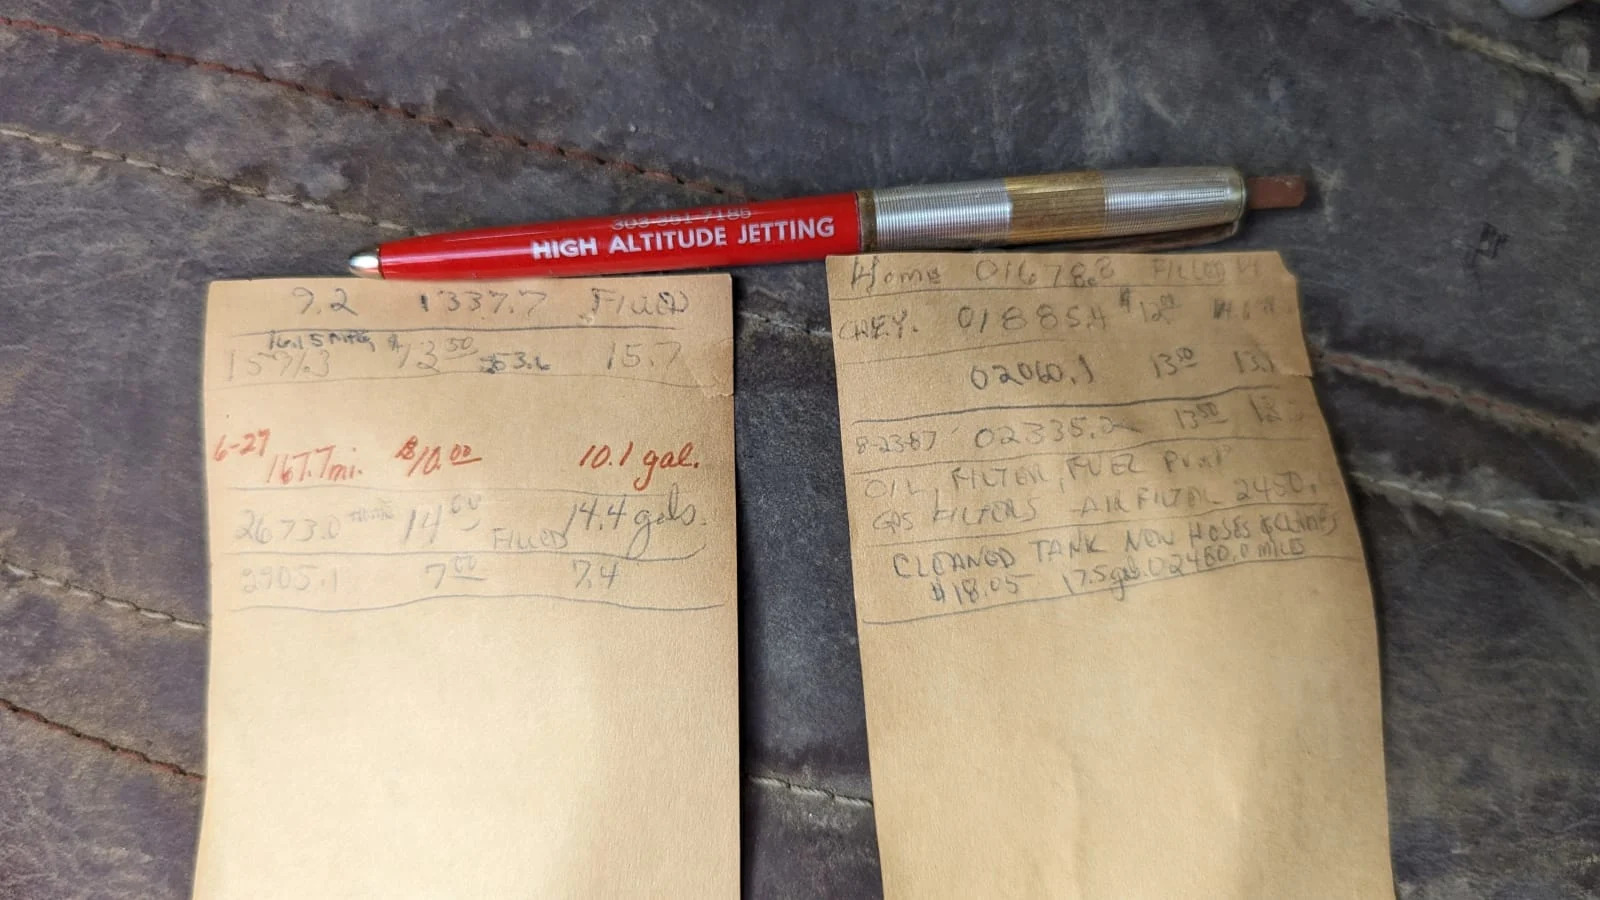 303-351-7185
HIGH ALTITUDE JETTING
9.2 1337.7 FILLED
16.15 MPG
1591.3 $13 50 253.6 15.7
6-27
167.7 mi. $10.00 10.1 gal.
2673.0 HOME 14 60 FILLED 14.4 gals.
2905.1 7 00 7.4
Home 01678.8 FILLED
CHEY. 01885.4 $12 00
02060.1 13 50 13.1
8-23-87 02335.2 13 50
OIL, FILTER, FUEL PUMP
GAS FILTERS AIR FILTER 2450.
CLEANED TANK NEW HOSES & CLAMPS
$18.05 17.5 gals. 02480.0 MILES